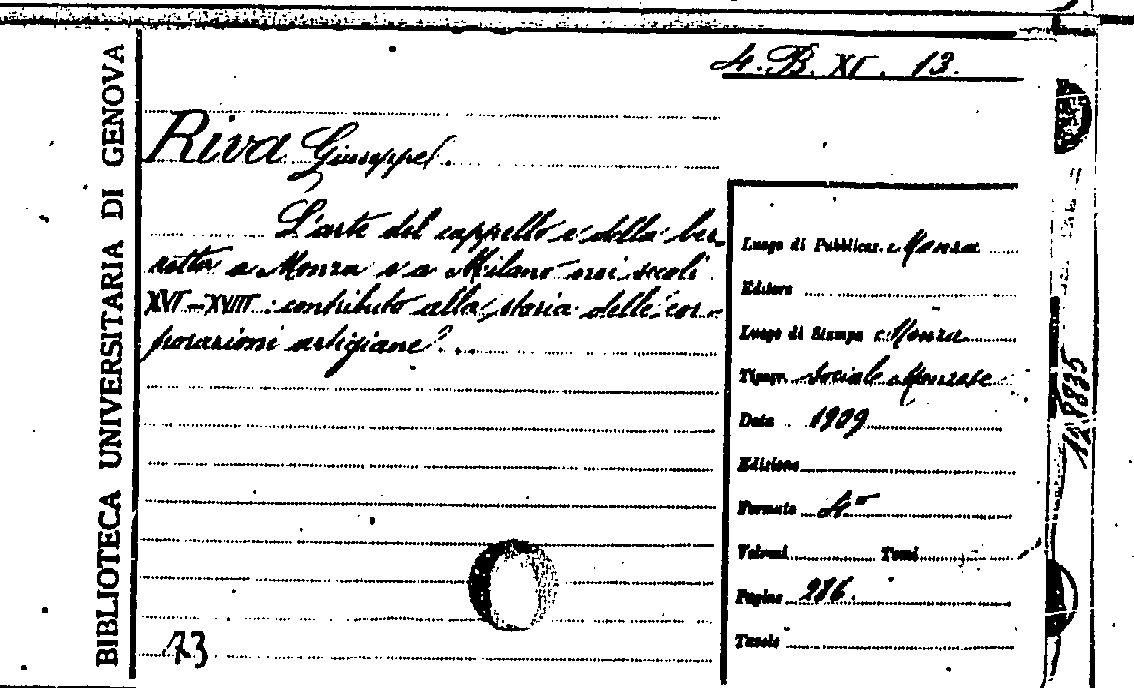 BIBLIOTECA UNIVERSITARIA DI GENOVA
4. B. XI. 13.
Riva Giuseppe.
L'arte del cappello e della ber-
retta a Monza e a Milano nei secoli
XVI-XVIII: contributo alla storia delle cor-
porazioni artigiane.
Luogo di Pubblicaz. Monza
Editore
Luogo di Stampa Monza
Tipogr. Sociale Monzese
Data 1909
Edizione
Formato 4°
Volumi Tomi
Pagine 286.
Tavole
73